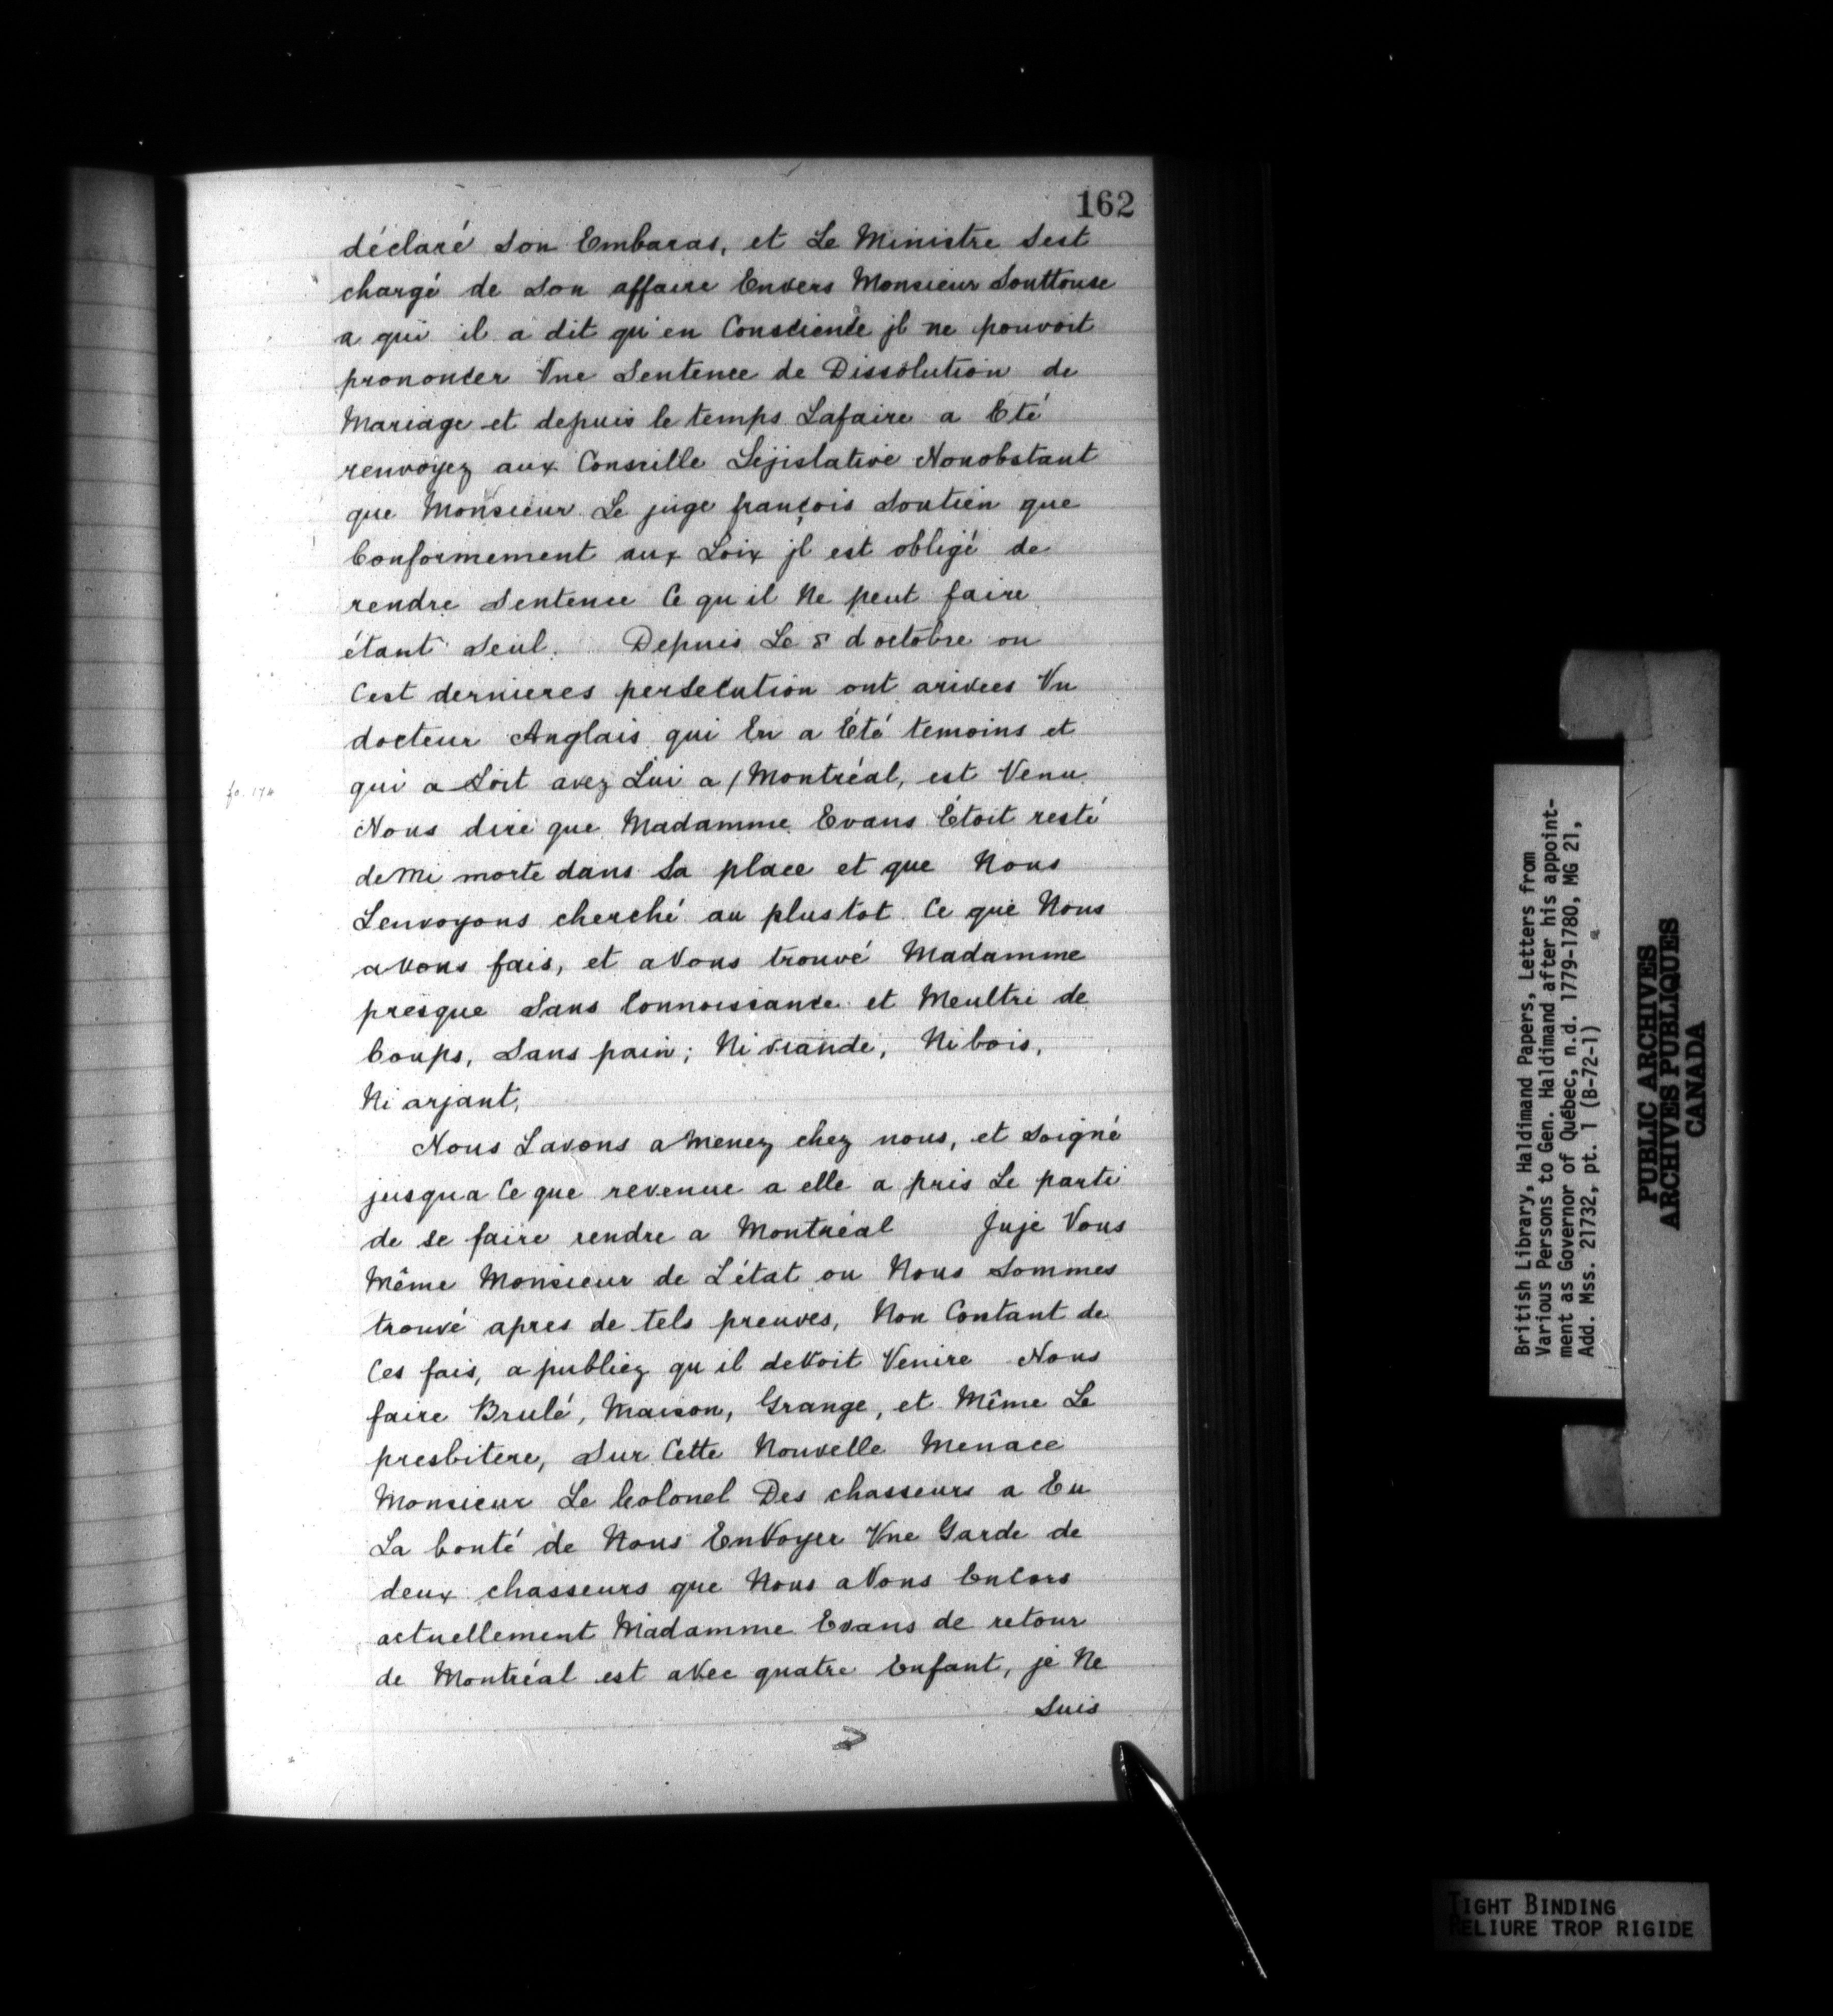 162
déclaré Son Embaras, et Le Ministre Sest
chargé de Son affaire Envers Monsieur Souttouse
a qui il a dit qu'en Conscience jl ne pouvoit
prononcer Vne Sentence de Dissolution de
Mariage et depuis le temps Lafaire a Eté
renvoyez aux Conseille Lejislative Nonobstant
que Monsieur Le juge françois Soutien que
Conformement aux Loix jl est obligé de
rendre Sentence Ce qu il Ne peut faire
étant Seul. Depuis Le 8 d octobre ou
Cest dernieres persecution ont arivees Vn
docteur Anglais qui En a Été temoins et
fo. 174
qui a Soit avez Lui a / Montréal, est Venu
Nous dire que Madamme Evans Étoit resté
demi morte dans Sa place et que Nous
Lenvoyons cherché au plustot Ce que Nous
avons fais, et avons trouvé Madamme
presque Sans Connoissance et Meultri de
Coups, Sans pain; Ni viande, Ni bois,
Ni arjant,
Nous Lavons amenez chez nous, et Soigné
jusqua Ce que revenue a elle a pris Le parti
de se faire rendre a Montréal Juje Vous
Même Monsieur de L'état ou Nous Sommes
trouvé apres de tels preuves, Non Contant de
Ces fais, a publiez qu il devoit Venire Nous
faire Brulé, Maison, Grange, et Même Le
presbitere, Sur Cette Nouvelle Menace
Monsieur Le Colonel Des chasseurs a Eu
La bonté de Nous Envoyer Vne Garde de
deux chasseurs que Nous avons Encors
actuellement Madamme Evans de retour
de Montréal est avec quatre Enfant, je Ne
Suis
British Library, Haldimand Papers, Letters from
Various Persons to Gen. Haldimand after his appoint-
ment as Governor of Québec, n.d. 1779-1780, MG 21,
Add. Mss. 21732, pt. 1 (B-72-1)
PUBLIC ARCHIVES
ARCHIVES PUBLIQUES
CANADA
TIGHT BINDING
RELIURE TROP RIGIDE